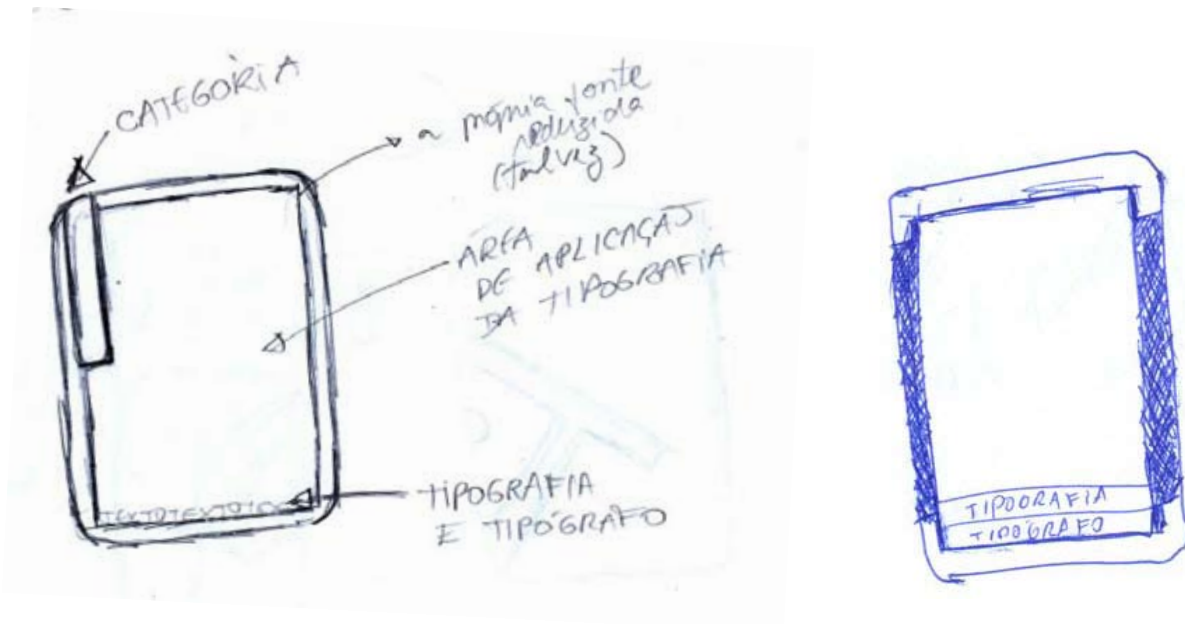 CATEGORIA
a própria fonte
reduzida
(talvez)
ÁREA
DE APLICAÇAO
DA TIPOGRAFIA
TEXTOTEXTOTEX
TIPOGRAFIA
E TIPÓGRAFO
TIPOGRAFIA
TIPÓGRAFO